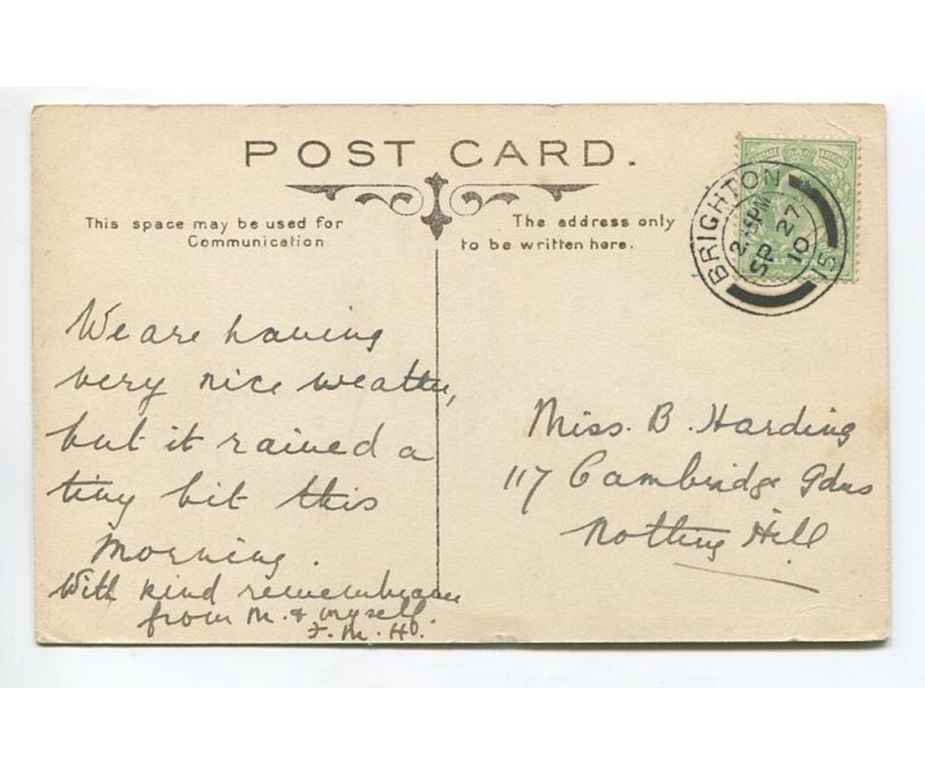 POST CARD.
This space may be used for
Communication
The address only
to be written here.
BRIGHTON
2.15PM
SP 27
10
15
We are having
very nice weather,
but it rained a
tiny bit this
Morning.
With kind remembrance
from M. & myself.
F. M. H.
Miss. B. Harding
117 Cambridge Gdns
Notting Hill